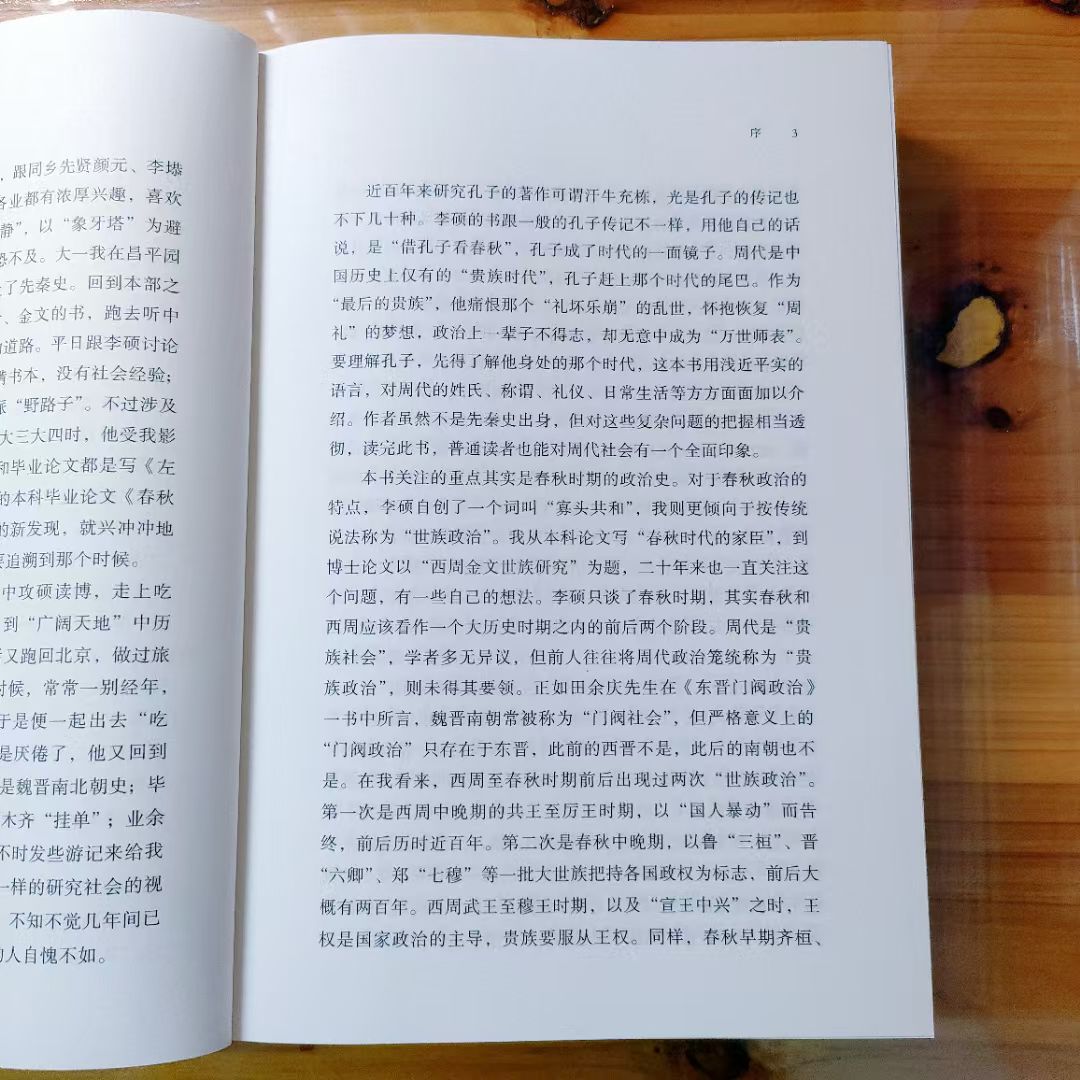 ，跟同乡先贤颜元、李塨
各业都有浓厚兴趣，喜欢
静”，以“象牙塔”为避
恐不及。大一我在昌平园
了先秦史。回到本部之
、金文的书，跑去听中
道路。平日跟李硕讨论
书本，没有社会经验；
“野路子”。不过涉及
大三大四时，他受我影
和毕业论文都是写《左
的本科毕业论文《春秋
的新发现，就兴冲冲地
要追溯到那个时候。
中攻硕读博，走上吃
到“广阔天地”中历
又跑回北京，做过旅
时候，常常一别经年，
于是便一起出去“吃
是厌倦了，他又回到
是魏晋南北朝史；毕
木齐“挂单”；业余
不时发些游记来给我
一样的研究社会的视
不知不觉几年间已
的人自愧不如。
序 3
近百年来研究孔子的著作可谓汗牛充栋，光是孔子的传记也
不下几十种。李硕的书跟一般的孔子传记不一样，用他自己的话
说，是“借孔子看春秋”，孔子成了时代的一面镜子。周代是中
国历史上仅有的“贵族时代”，孔子赶上那个时代的尾巴。作为
“最后的贵族”，他痛恨那个“礼坏乐崩”的乱世，怀抱恢复“周
礼”的梦想，政治上一辈子不得志，却无意中成为“万世师表”。
要理解孔子，先得了解他身处的那个时代，这本书用浅近平实的
语言，对周代的姓氏、称谓、礼仪、日常生活等方方面面加以介
绍。作者虽然不是先秦史出身，但对这些复杂问题的把握相当透
彻，读完此书，普通读者也能对周代社会有一个全面印象。
本书关注的重点其实是春秋时期的政治史。对于春秋政治的
特点，李硕自创了一个词叫“寡头共和”，我则更倾向于按传统
说法称为“世族政治”。我从本科论文写“春秋时代的家臣”，到
博士论文以“西周金文世族研究”为题，二十年来也一直关注这
个问题，有一些自己的想法。李硕只谈了春秋时期，其实春秋和
西周应该看作一个大历史时期之内的前后两个阶段。周代是“贵
族社会”，学者多无异议，但前人往往将周代政治笼统称为“贵
族政治”，则未得其要领。正如田余庆先生在《东晋门阀政治》
一书中所言，魏晋南朝常被称为“门阀社会”，但严格意义上的
“门阀政治”只存在于东晋，此前的西晋不是，此后的南朝也不
是。在我看来，西周至春秋时期前后出现过两次“世族政治”。
第一次是西周中晚期的共王至厉王时期，以“国人暴动”而告
终，前后历时近百年。第二次是春秋中晚期，以鲁“三桓”、晋
“六卿”、郑“七穆”等一批大世族把持各国政权为标志，前后大
概有两百年。西周武王至穆王时期，以及“宣王中兴”之时，王
权是国家政治的主导，贵族要服从王权。同样，春秋早期齐桓、